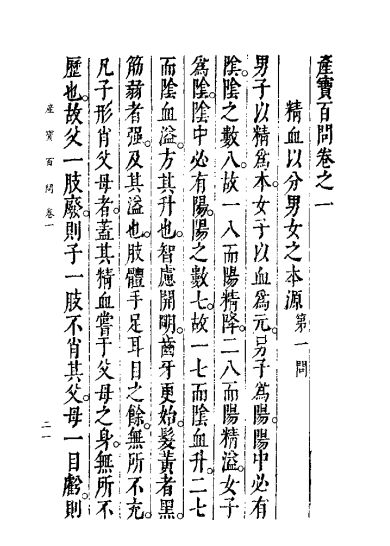 產寶百問卷之一
精血以分男女之本源 第一問
男子以精爲本。女子以血爲元。男子爲陽。陽中必有
陰。陰之數八。故一八而陽精降。二八而陽精溢。女子
爲陰。陰中必有陽。陽之數七。故一七而陰血升。二七
而陰血溢。方其升也。智慮開明。齒牙更始。髮黃者黑。
筋弱者强。及其溢也。肢體手足耳目之餘。無所不充。
凡子形肖父母者。蓋其精血嘗于父母之身。無所不
歷也。故父一肢廢。則子一肢不肖其父。母一目虧。則
產寶百問 卷一
二一